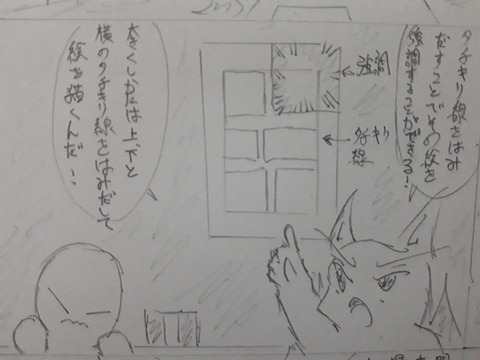 タチキリ線をはみ
だすことでその絵を
強調することができる！
強調
タチキリ
線
大きくしかたは上下と
横のタチキリ線をはみだして
絵を描くんだ！！